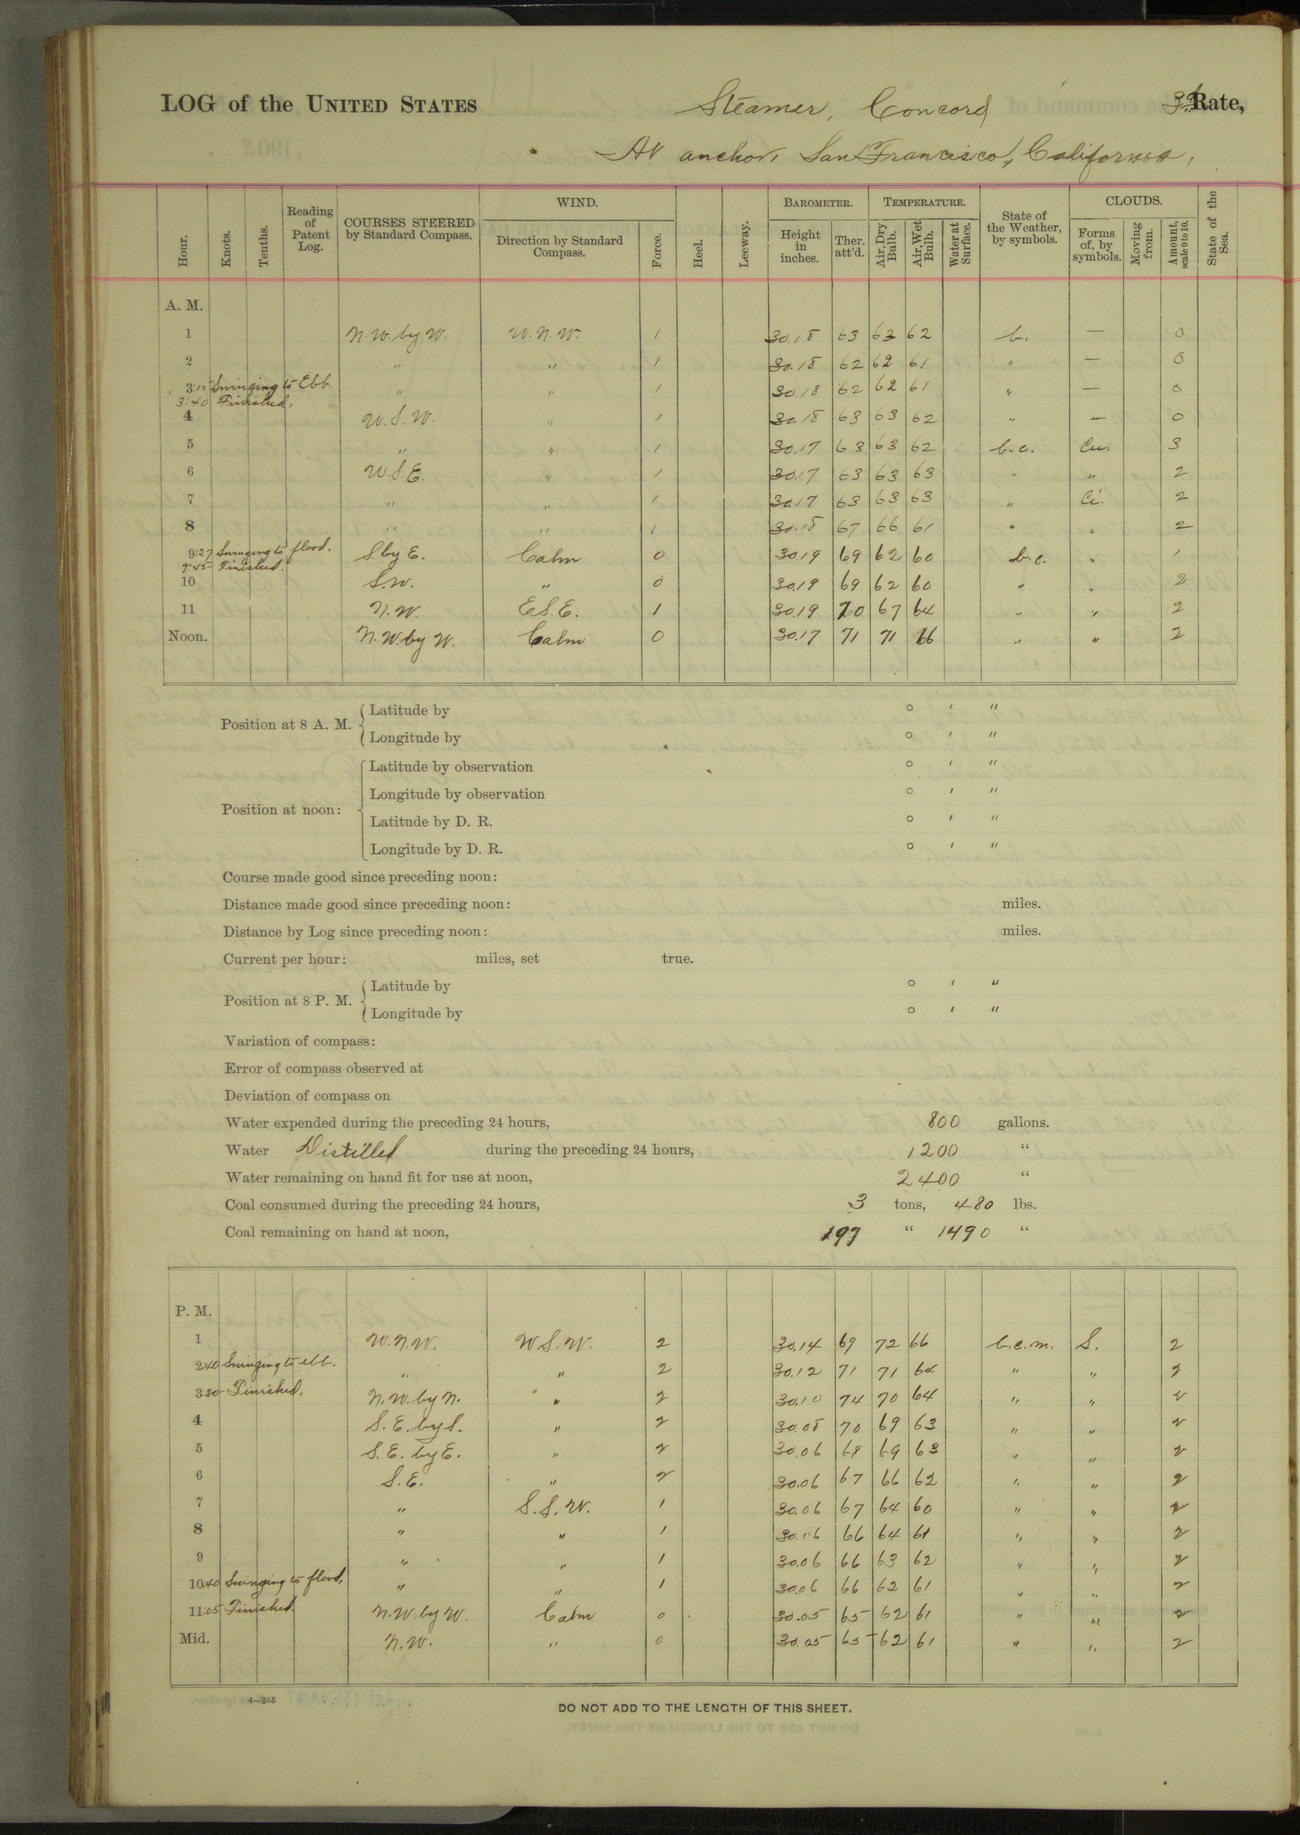 LOG of the UNITED STATES Steamer, Concord 3d Rate,
At anchor, San Francisco, California,
Hour. Knots. Tenths. Reading of Patent Log. COURSES STEERED by Standard Compass. WIND. Direction by Standard Compass. Force. Heel. Leeway. BAROMETER. Height in inches. Ther. att'd. TEMPERATURE. Air, Dry Bulb. Air, Wet Bulb. Water at Surface. State of the Weather, by symbols. CLOUDS. Forms of, by symbols. Moving from. Amount, scale 0 to 10. State of the Sea.
A. M.
1 N.W. by W. W.N.W. 1 30.18 63 63 62 b. — 0
2 " " 1 30.18 62 62 61 " — 0
3:15 Swinging to Ebb. " " 1 30.18 62 62 61 " — 0
3:40 Finished.
4 W.S.W. " 1 30.18 63 63 62 " — 0
5 " " 1 30.17 63 63 62 b.c. Cu. 3
6 W.S.E. " 1 30.17 63 63 63 " " 2
7 " " 1 30.17 63 63 63 " Ci. 2
8 " " 1 30.18 67 66 61 " " 2
9:27 Swinging to flood. S by E. Calm 0 30.19 69 62 60 b.c. " 1
9:45 Finished.
10 S.W. " 0 30.19 69 62 60 " " 2
11 N.W. E.S.E. 1 30.19 70 67 64 " " 2
Noon. N.W. by W. Calm 0 30.17 71 71 66 " " 2
Position at 8 A. M. Latitude by ° ' "
Longitude by ° ' "
Position at noon: Latitude by observation ° ' "
Longitude by observation ° ' "
Latitude by D. R. ° ' "
Longitude by D. R. ° ' "
Course made good since preceding noon:
Distance made good since preceding noon: miles.
Distance by Log since preceding noon: miles.
Current per hour: miles, set true.
Position at 8 P. M. Latitude by ° ' "
Longitude by ° ' "
Variation of compass:
Error of compass observed at
Deviation of compass on
Water expended during the preceding 24 hours, 800 gallons.
Water Distilled during the preceding 24 hours, 1200 "
Water remaining on hand fit for use at noon, 2400 "
Coal consumed during the preceding 24 hours, 3 tons, 480 lbs.
Coal remaining on hand at noon, 197 " 1490 "
P. M.
1 W.N.W. W.S.W. 2 30.14 69 72 66 b.c.m. S. 2
2:40 Swinging to ebb. " " 2 30.12 71 71 64 " " 2
3:20 Finished. N.W. by N. " 2 30.10 74 70 64 " " 2
4 S.E. by S. " 2 30.08 70 69 63 " " 2
5 S.E. by E. " 2 30.06 68 69 63 " " 2
6 S.E. " 2 30.06 67 66 62 " " 2
7 " S.S.W. 1 30.06 67 64 60 " " 2
8 " " 1 30.06 66 64 61 " " 2
9 " " 1 30.06 66 63 62 " " 2
10:40 Swinging to flood. " " 1 30.06 66 62 61 " " 2
11:05 Finished. N.W. by W. Calm 0 30.05 65 62 61 " " 2
Mid. N.W. " 0 30.05 65 62 61 " " 2
4—265
DO NOT ADD TO THE LENGTH OF THIS SHEET.